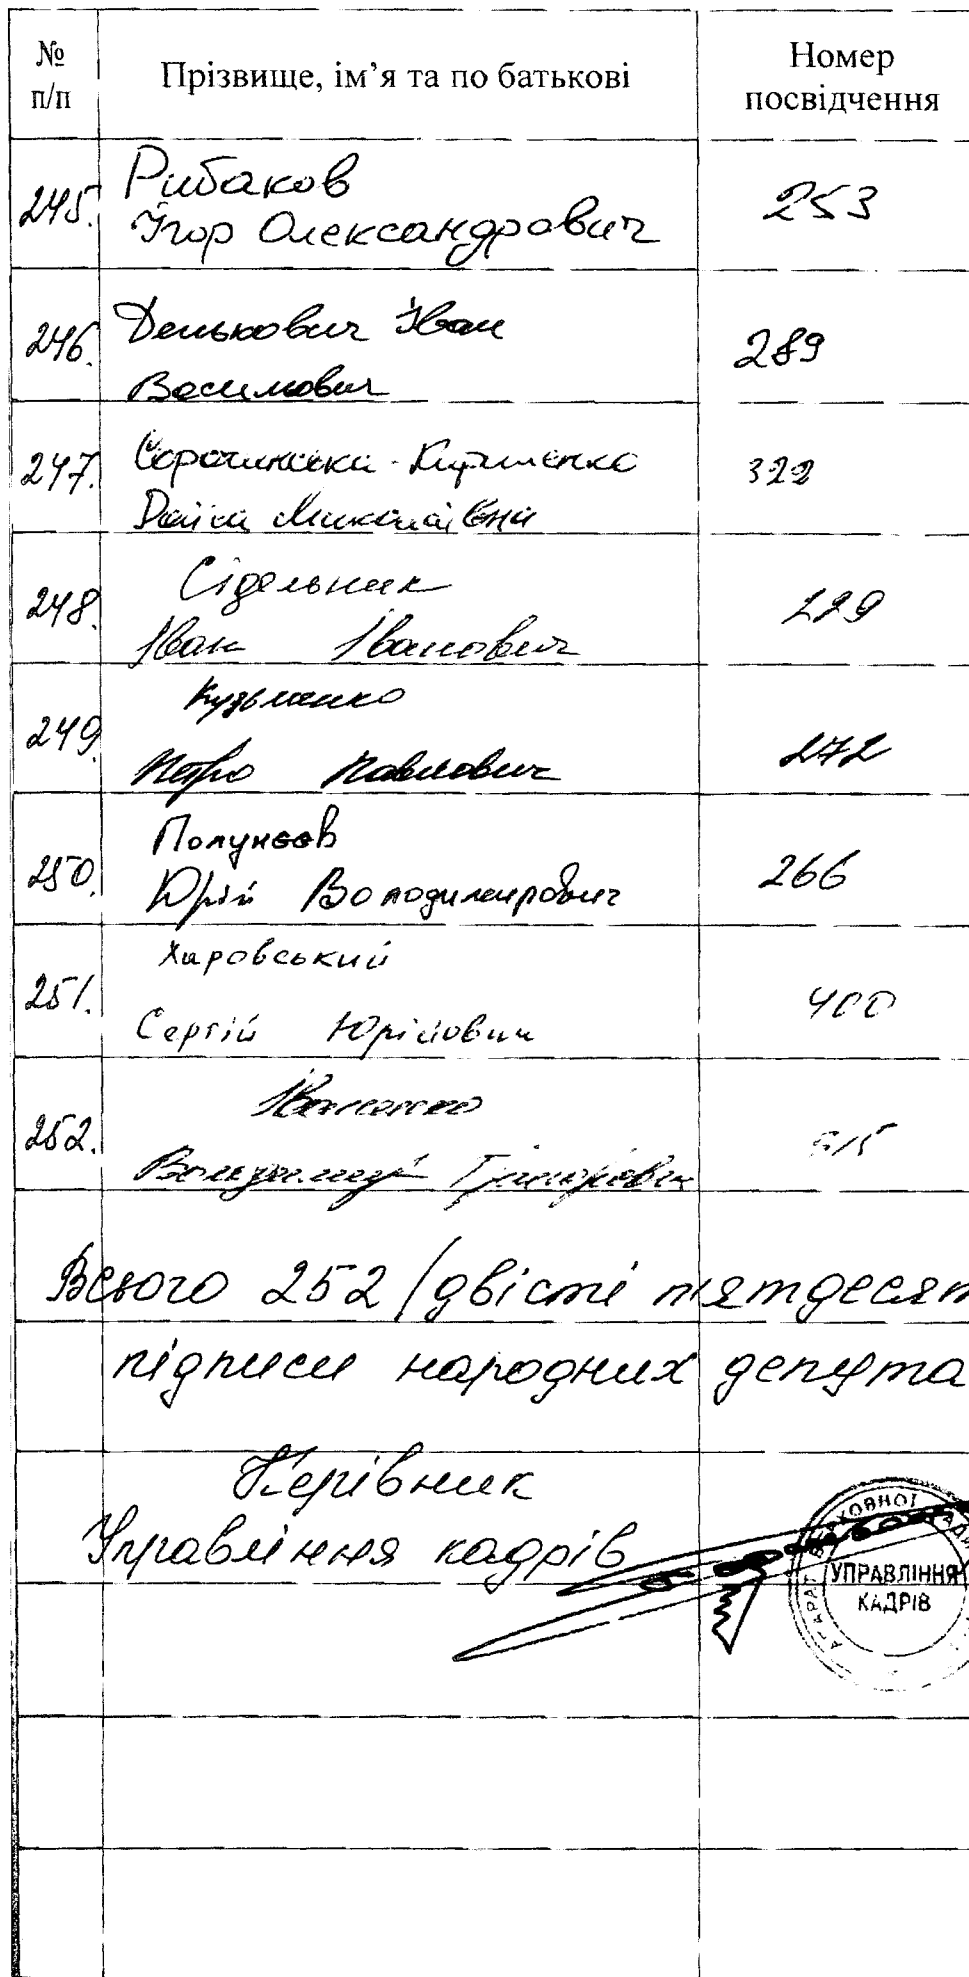 № п/п
Прізвище, ім’я та по батькові
Номер посвідчення
245. Рибаков 253
Ігор Олександрович
246. Денькович Іван 289
Васильович
247. Сорочинська-Кириленко 322
Раїса Миколаївна
248. Сідельник 229
Іван Іванович
249. Кузьменко 272
Петро Павлович
250. Полунєєв 266
Юрій Володимирович
251. Харовський 400
Сергій Юрійович
252.
Володимир Григорович
Всього 252 (двісті п'ятдесят
підписи народних депута
Керівник
Управління кадрів
АПАРАТ ВЕРХОВНОЇ РАДИ
УПРАВЛІННЯ
КАДРІВ